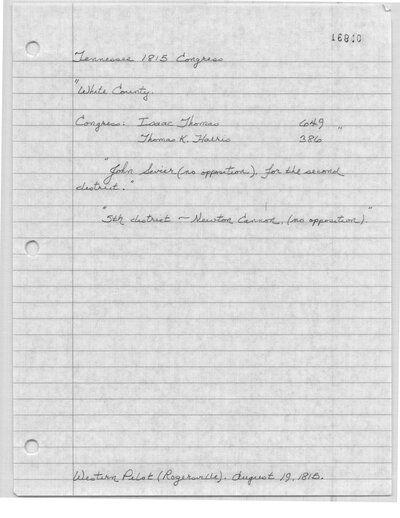 16840
Tennessee 1815 Congress
"White County.
Congress: Isaac Thomas 649
Thomas K. Harris 386 "
"John Sevier (no opposition), for the second
district."
"5th district — Newton Cannon, (no opposition)."
Western Pilot (Rogersville). August 19, 1815.